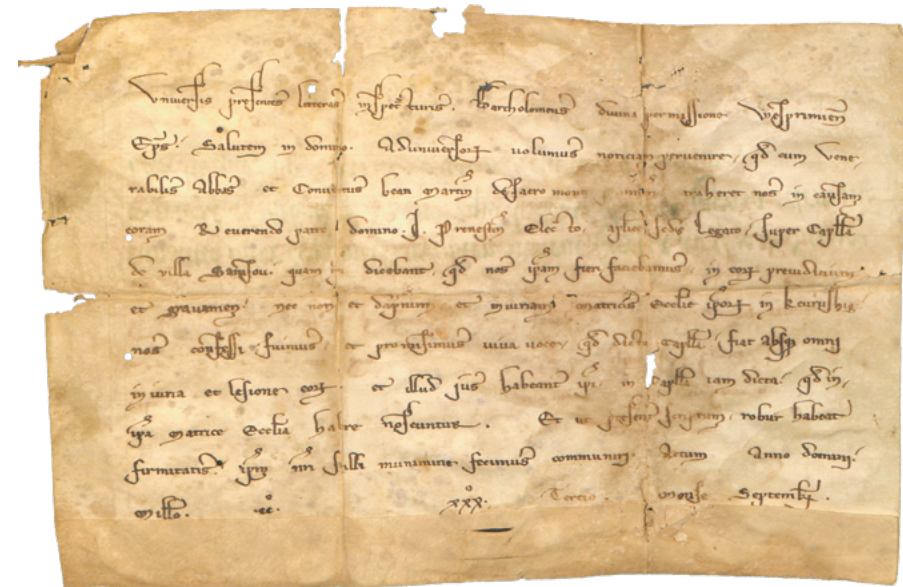 Vniuersis presentes litteras inspecturis. Bartholomeus diuina permissione Vesprimien
Eps. Salutem in domino. Ad uniuersorꝝ uolumus noticiam peruenire, qd cum Vene
rabilis Abbas et Conuentus beati Martini de sacro monte traheret nos in causam
coram Reuerendo patre domino .J. Prenestin Electo, aplice sedis Legato, super Capella
de uilla quam dicebant, qd nos ipam fieri faciebamus, in eorꝝ preiudicium
et grauamen, nec non et dampnum et iniuriam matricis Ecclie iporꝝ in
nos confessi fuimus, et promisimus uiua uoce, qd dicta capella fiat absqꝫ omni
iniuria et lesione eorꝝ. et illud ius habeant ipi in Capella iam dicta. qd in
ipa matrice Ecclia habere noscuntur. Et ut presens scriptum robur habeat
firmitatis. sigilli munimine fecimus communiri. Actum Anno domini.
Millo. cc. xxx. Tercio. Mense Septembr.